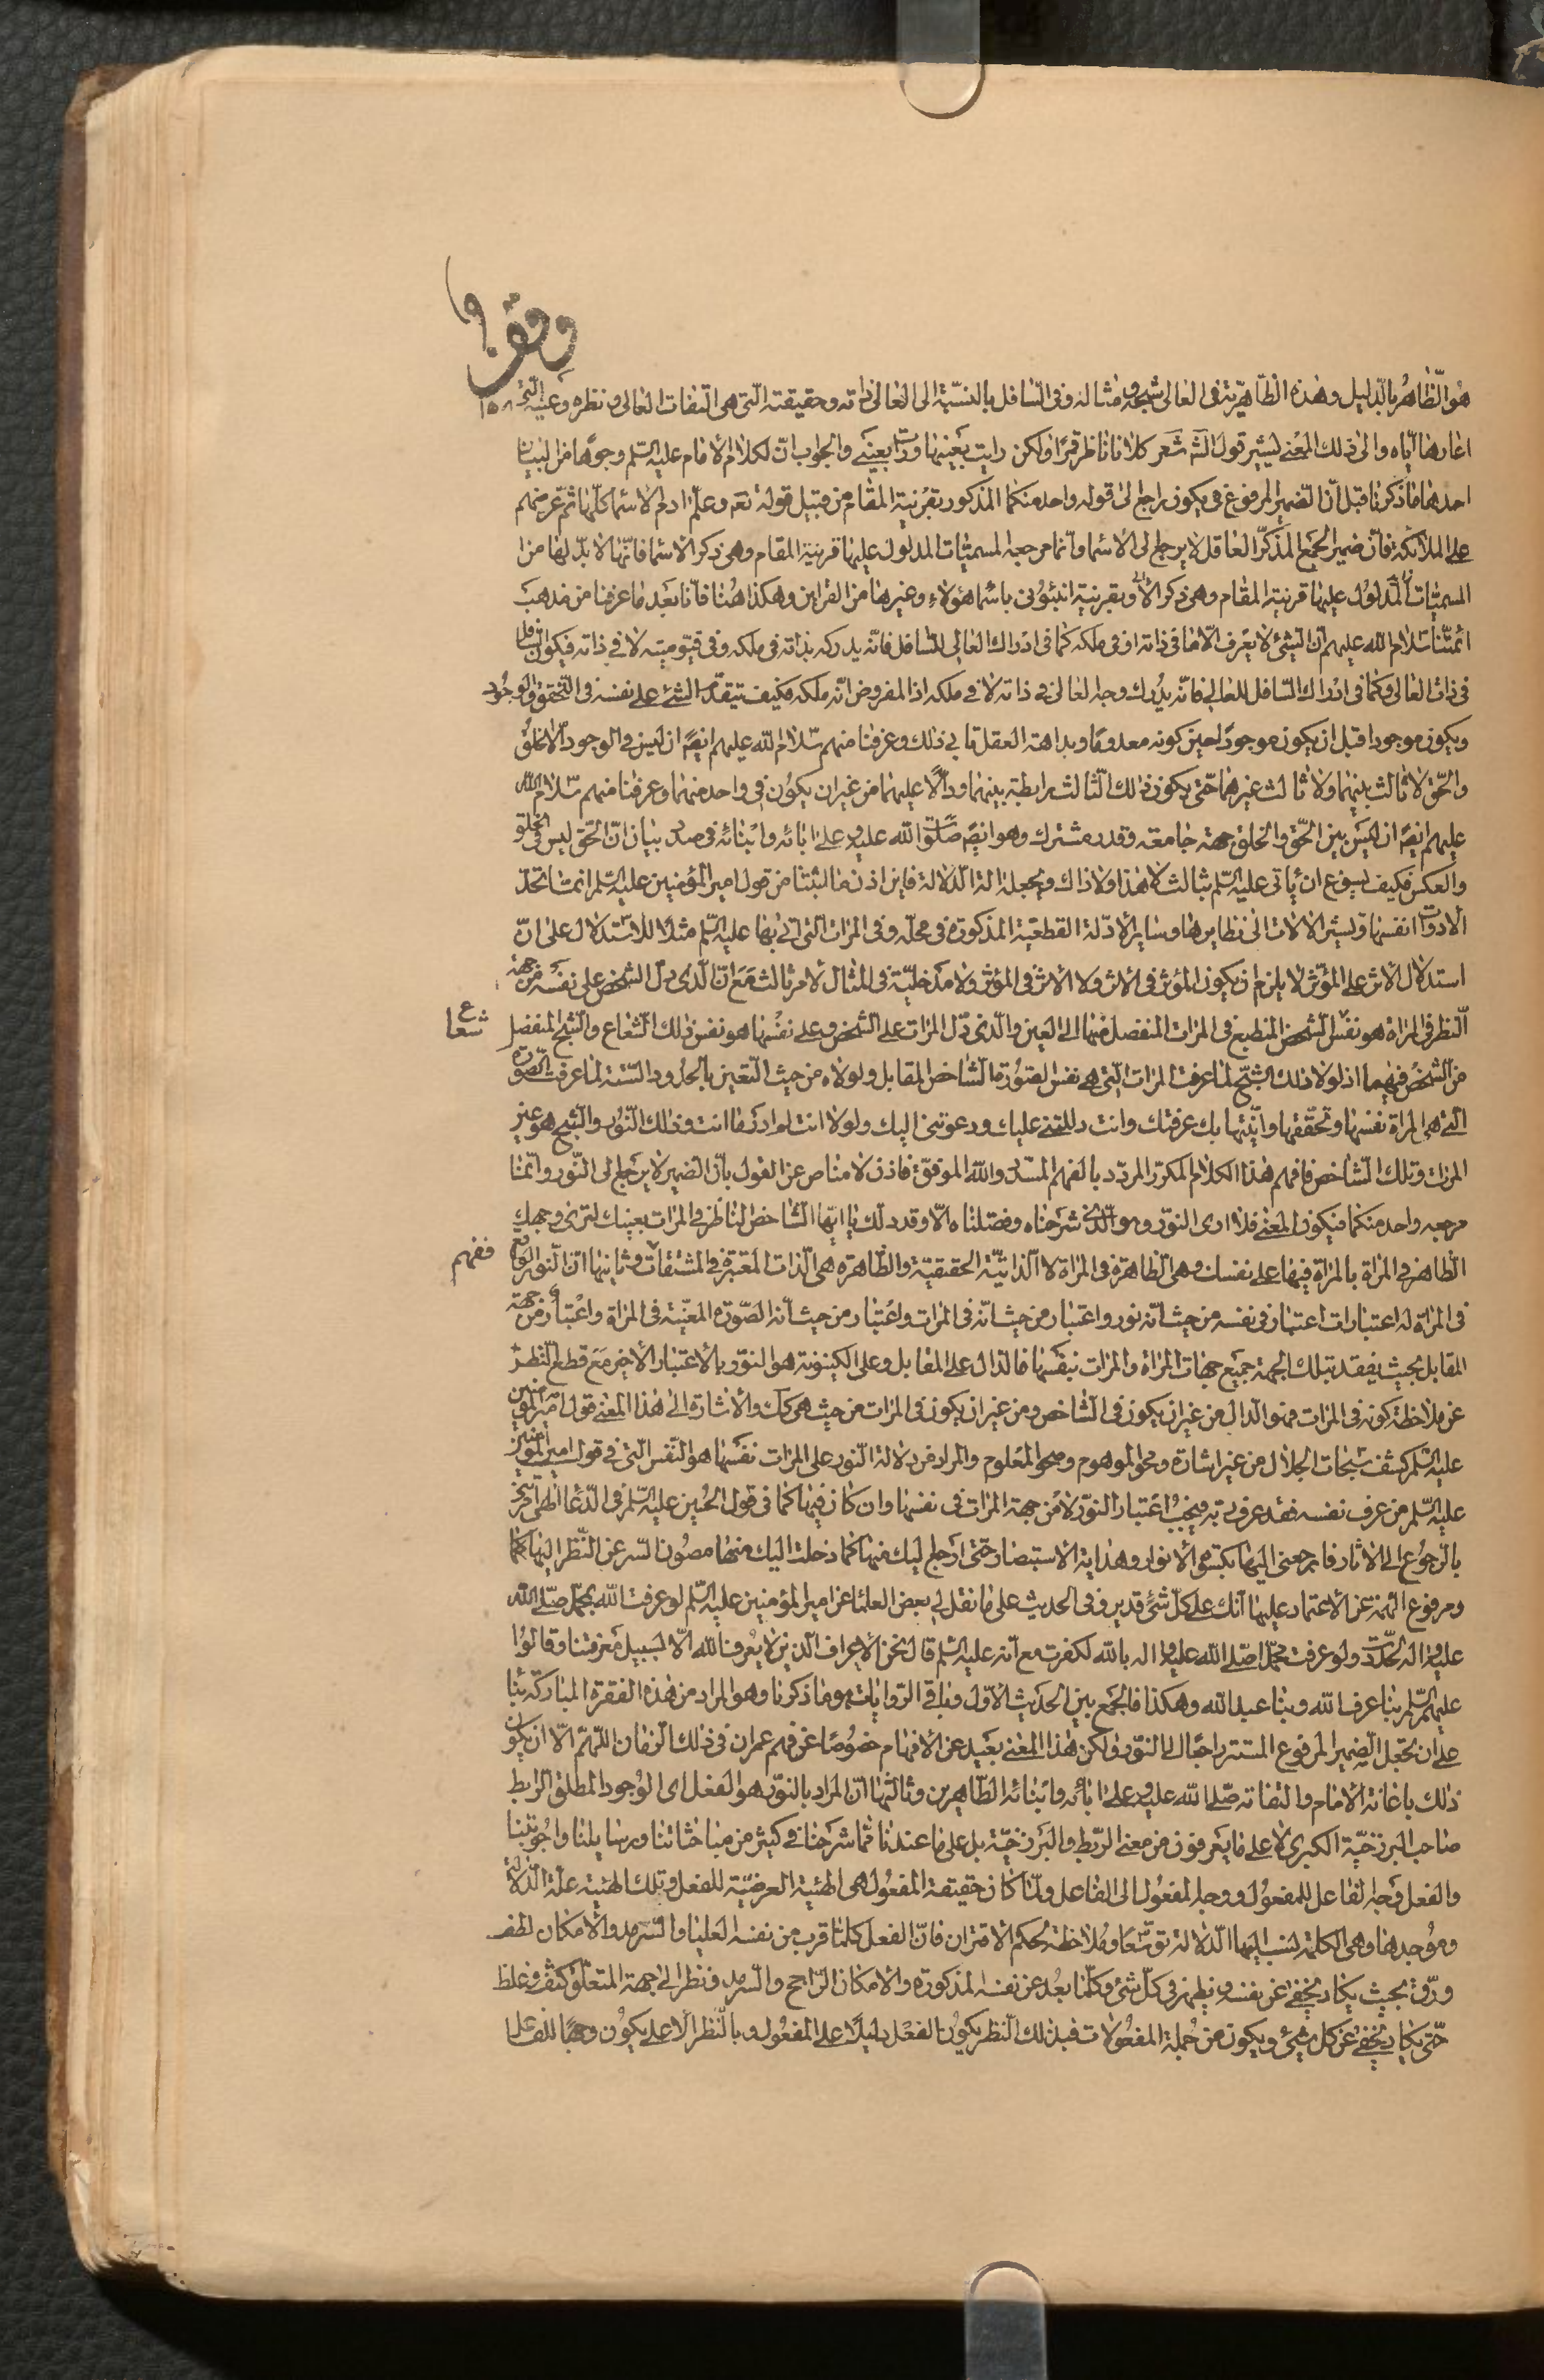 وقف
هو الظاهر بالدليل وهذه الظاهرية في العالي شبحه ومثاله وفي السافل بالنسبة الى العالي ذاته وحقيقته التي هي التفات العالي ونظره وعينه التي
اعارها اياه والى ذلك المعنى يشير قول الشاعر كلانا ناظر قمرا ولكن رايت بعينها ورات بعيني والجواب ان لكلام الامام عليه السلم وجوها من البيان
احدها ما ذكرنا قبل ان الضمير المرفوع في يكون راجع الى قوله واحد منكما المذكور بقرينة المقام من قبيل قوله تعم وعلم ادم الاسماء كلها ثم عرضهم
على الملائكة فان ضمير الجمع المذكر العاقل لا يرجع الى الاسماء وانما مرجعه المسميات المدلول عليها قرينة المقام وهي ذكر الاسماء فانها لا بد لها من
المسميات المدلول عليها قرينة المقام وهي ذكر الاسماء وبقرينة انبئوني باسماء هؤلاء وغيرها من القراين وهكذا هنا فانا بعد ما عرفنا من مذهب
ائمتنا سلام الله عليهم ان الشيء لا يعرف الا ما في ذاته او في ملكه كما في ادراك العالي للسافل فانه يدركه بذاته في ملكه وفي قيوميته لا في ذاته فيكون السافل
في ذات العالي وكما في ادراك السافل للعالي فانه يدرك وجه العالي في ذاته لا في ملكه اذ المفروض انه ملكه فكيف يتقدم الشيء على نفسه في التحقق والوجود
ويكون موجودا قبل ان يكون موجودا حين كونه معدوما وبداهة العقل تابى ذلك وعرفنا منهم سلام الله عليهم ايضا ان ليس في الوجود الا الخلق
والحق لا ثالث بينهما ولا ثالث غيرهما حتى يكون ذلك الثالث رابطة بينهما ودالا عليهما من غير ان يكون في واحد منهما وعرفنا منهم سلام الله
عليهم ايضا ان ليس بين الحق والخلق جهة جامعة وقدر مشترك وهو ايضا صلوات الله عليه وعلى ابائه وابنائه في صدد بيان ان الحق ليس في الخلق
والعكس فكيف يسوغ ان ياتي عليه السلم بثالث لا هذا ولا ذاك ويجعله الة الدلالة فاين اذن ما اثبتنا من قول امير المؤمنين عليه السلم انما تحد
الادوات انفسها وتشير الالات الى نظايرها وساير الادلة القطعية المذكورة في محله وفي المرات التي اتى بها عليه السلم مثلا للاستدلال على ان
استدلال الاثر على المؤثر لا يلزم ان يكون المؤثر في الاثر ولا الاثر في المؤثر ولا مدخلية في المثال لامر ثالث مع ان الذي دل الشخص على نفسه من جهة
النظر في المراة هو نفس الشخص المنطبع في المرات المنفصل منها الى العين والذي دل المرات على الشخص وعلى نفسها هو نفس ذلك الشعاع والشبح المنفصل
شعاع
من الشخص فيهما اذ لولا ذلك الشبح لما عرفت المرات التي هي نفس الصورة ما الشاخص المقابل ولولاه من حيث التعين بالحدود الستة لما عرفت الصورة
التي هي المراة نفسها وتحققها وانيتها بك عرفتك وانت دللتني عليك ودعوتني اليك ولولا انت لم ادر ما انت وذلك النور والشبح هو عين
المرات وتلك الشاخص فافهم هذا الكلام المكرر المردد بالفهم المسدد والله الموفق فاذن لا مناص عن القول بان الضمير لا يرجع الى النور وانما
مرجعه واحد منكما فيكون المعنى فلا ارى النور وهو الذي شرحناه وفصلناه الا وقد دلك يا ايها الشاخص الناظر في المرات بعينك لترى وجهك
الظاهر في المراة بالمراة فيها على نفسك وهي الظاهرة في المراة لا الذاتية الحقيقية والظاهرة هي الذات المعتبرة في المشتقات وثانيها ان النور الواقع
ففهم
في المراة له اعتبارات اعتبار في نفسه من حيث انه نور واعتبار من حيث انه في المرات واعتبار من حيث انه الصورة المعينة في المراة واعتبار من جهة
المقابل بحيث يفقد بتلك الجهة جميع جهات المراة والمرات نبفسها فالدال على المقابل وعلى الكينونة هو النور بالاعتبار الاخير مع قطع النظر
عن ملاحظة كونه في المرات فهو الدال من غير ان يكون في الشاخص ومن غير ان يكون في المرات من حيث هي كك والاشارة الى هذا المعنى قول امير المؤمنين
عليه السلم كشف سبحات الجلال من غير اشارة ومحو الموهوم وصحو المعلوم والمراد من دلالة النور على المرات نفسها هو النفس التي في قول امير المؤمنين
عليه السلم من عرف نفسه فقد عرف ربه فيجب اعتبار النور لا من جهة المرات في نفسها وان كان فيها كما في قول الحسين عليه السلم في الدعاء الهي امرتني
بالرجوع الى الاثار فارجعني اليها بكسوة الانوار وهداية الاستبصار حتى ارجع اليك منها كما دخلت اليك منها مصون السر عن النظر اليها
ومرفوع الهمة عن الاعتماد عليها انك على كل شيء قدير وفي الحديث على ما نقل لي بعض العلماء عن امير المؤمنين عليه السلم لو عرفت الله بمحمد صلى الله
عليه واله لحدت ولو عرفت محمدا صلى الله عليه واله بالله لكفرت مع انه عليه السلم قال نحن الاعراف الذين لا يعرف الله الا بسبيل معرفتنا وقالوا
عليهم السلم بنا عرف الله وبنا عبد الله وهكذا فالجمع بين الحديث الاول وباقي الروايات هو ما ذكرنا وهو المراد من هذه الفقرة المباركة بنا
على ان نجعل الضمير المرفوع المستتر راجعا الى النور ولكن هذا المعنى بعيد عن الافهام خصوصا عن فهم عمران في ذلك الزمان اللهم الا ان يكون
ذلك باعانة الامام والتفاته صلى الله عليه وعلى ابائه وابنائه الطاهرين وثالثها ان المراد بالنور هو الفعل اي الوجود المطلق الرابط
صاحب البرزخية الكبرى لا على ما يعرفون من معنى الربط والبرزخية بل على ما عندنا مما شرحنا في كثير من مباحثاتنا ورسايلنا واجوبتنا
والفعل وجه الفاعل للمفعول ووجه المفعول الى الفاعل ولما كان حقيقة المفعول هي الهيئة العرضية للفعل وتلك الهيئة علة الدلالة
وموجدها وهي الكلمة لنسب اليها الدلالة توسعا وملاحظة لحكم الاقتران فان الفعل كلما قرب من نفسه العليا والسرمد والامكان لطف
ورق بحيث يكاد يخفى عن نفسه ويظهر في كل شيء وكلما بعد عن نفسه المذكورة والامكان الراجح والسرمد ونظر الى جهة المتعلق كثف وغلظ
حتى يكاد يخفى عن كل شيء ويكون من جملة المفعولات فبذلك النظر يكون الفعل دليلا على المفعول وبالنظر الاعلى يكون وجها للفاعل